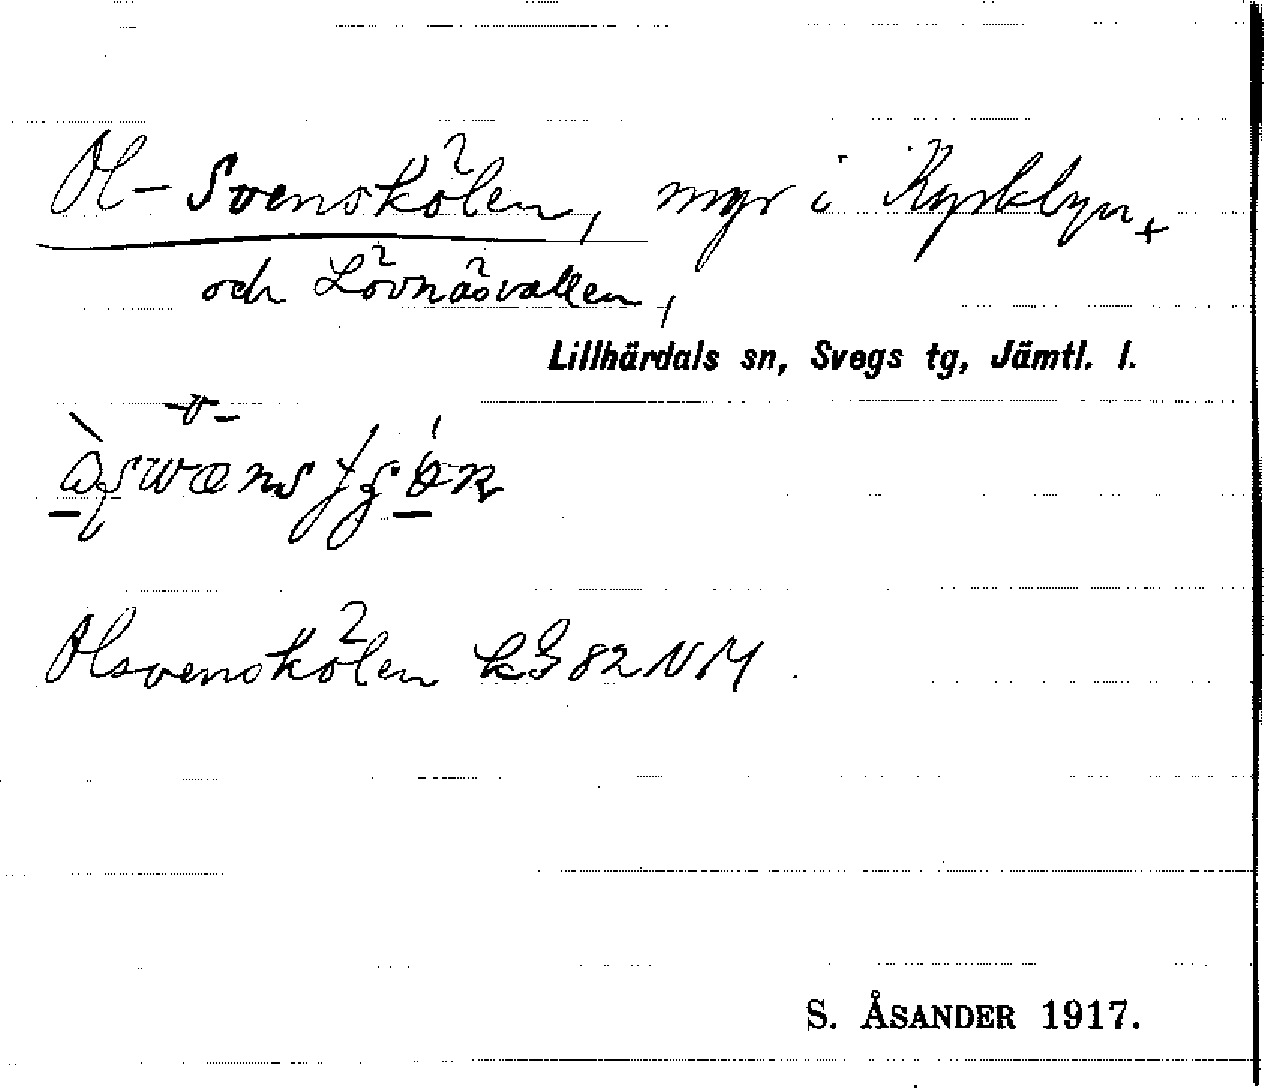 Ol-Svenskölen, myr i Kyrkbyn +
och Lövnäsvallen,
Lillhärdals sn, Svegs tg, Jämtl. l.
Olsvenskölen kG 82 NM.
S. ÅSANDER 1917.